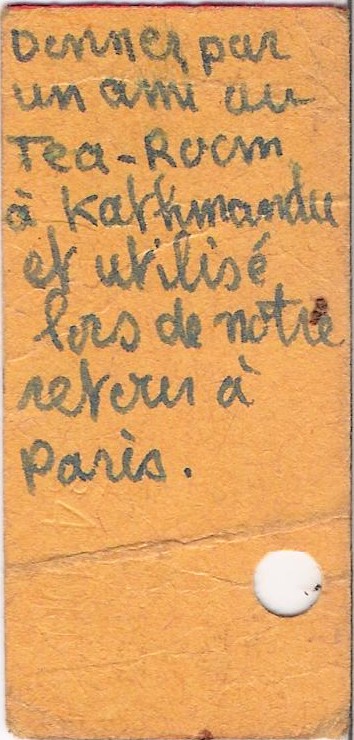 Donner par
un ami au
Tea-Room
à Kathmandu
et utilisé
lors de notre
retour à
Paris.